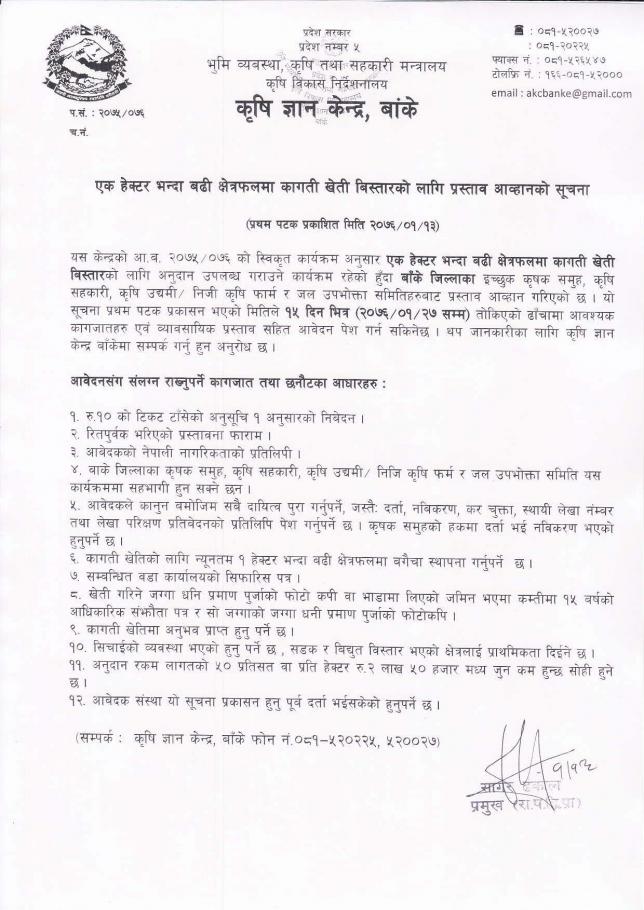 प्रदेश सरकार
प्रदेश नम्बर ५
भुमि व्यवस्था, कृषि तथा सहकारी मन्त्रालय
कृषि विकास निर्देशनालय
कृषि ज्ञान केन्द्र, बांके
☎ : ०८१-५२००२७
: ०८१-२०२२५
फ्याक्स नं. : ०८१-५२६५४७
टोलफ्रि नं. : १६६-०८१-५२०००
email : akcbanke@gmail.com
प.सं. : २०७५/०७६
च.नं.
एक हेक्टर भन्दा बढी क्षेत्रफलमा कागती खेती बिस्तारको लागि प्रस्ताव आव्हानको सूचना
(प्रथम पटक प्रकाशित मिति २०७६/०१/१३)
यस केन्द्रको आ.ब. २०७५/०७६ को स्विकृत कार्यक्रम अनुसार एक हेक्टर भन्दा बढी क्षेत्रफलमा कागती खेती
बिस्तारको लागि अनुदान उपलब्ध गराउने कार्यक्रम रहेको हुँदा बाँके जिल्लाका इच्छुक कृषक समुह, कृषि
सहकारी, कृषि उद्यमी/ निजी कृषि फार्म र जल उपभोक्ता समितिहरुबाट प्रस्ताव आव्हान गरिएको छ । यो
सूचना प्रथम पटक प्रकासन भएको मितिले १५ दिन भित्र (२०७६/०१/२७ सम्म) तोकिएको ढाँचामा आवश्यक
कागजातहरु एवं व्यावसायिक प्रस्ताव सहित आवेदन पेश गर्न सकिनेछ । थप जानकारीका लागि कृषि ज्ञान
केन्द्र बाँकेमा सम्पर्क गर्नु हुन अनुरोध छ ।
आवेदनसंग संलग्न राख्नुपर्ने कागजात तथा छनौटका आधारहरु :
१. रु.१० को टिकट टाँसेको अनुसूचि १ अनुसारको निबेदन ।
२. रितपुर्वक भरिएको प्रस्तावना फाराम ।
३. आबेदकको नेपाली नागरिकताको प्रतिलिपी ।
४. बाके जिल्लाका कृषक समुह, कृषि सहकारी, कृषि उद्यमी/ निजि कृषि फर्म र जल उपभोक्ता समिति यस
कार्यक्रममा सहभागी हुन सक्ने छन ।
५. आवेदकले कानुन बमोजिम सबै दायित्व पुरा गर्नुपर्ने, जस्तै: दर्ता, नबिकरण, कर चुक्ता, स्थायी लेखा नंम्बर
तथा लेखा परिक्षण प्रतिवेदनको प्रतिलिपि पेश गर्नुपर्ने छ । कृषक समुहको हकमा दर्ता भई नबिकरण भएको
हुनुपर्ने छ ।
६. कागती खेतिको लागि न्यूनतम १ हेक्टर भन्दा बढी क्षेत्रफलमा बगैचा स्थापना गर्नुपर्ने छ ।
७. सम्बन्धित वडा कार्यालयको सिफारिस पत्र ।
८. खेती गरिने जग्गा धनि प्रमाण पुर्जाको फोटो कपी वा भाडामा लिएको जमिन भएमा कम्तीमा १५ बर्षको
आधिकारिक संझौता पत्र र सो जग्गाको जग्गा धनी प्रमाण पुर्जाको फोटोकपि ।
९. कागती खेतिमा अनुभव प्राप्त हुनु पर्ने छ ।
१०. सिचाईको व्यवस्था भएको हुनु पर्ने छ , सडक र बिद्युत विस्तार भएको क्षेत्रलाई प्राथमिकता दिईने छ ।
११. अनुदान रकम लागतको ५० प्रतिसत वा प्रति हेक्टर रु.२ लाख ५० हजार मध्य जुन कम हुन्छ सोही हुने
छ ।
१२. आवेदक संस्था यो सूचना प्रकासन हुनु पूर्व दर्ता भईसकेको हुनुपर्ने छ ।
(सम्पर्क : कृषि ज्ञान केन्द्र, बाँके फोन नं.०८१-५२०२२५, ५२००२७)
१/१३
सागर ढकाल
प्रमुख (रा.प.द्वि.प्रा)